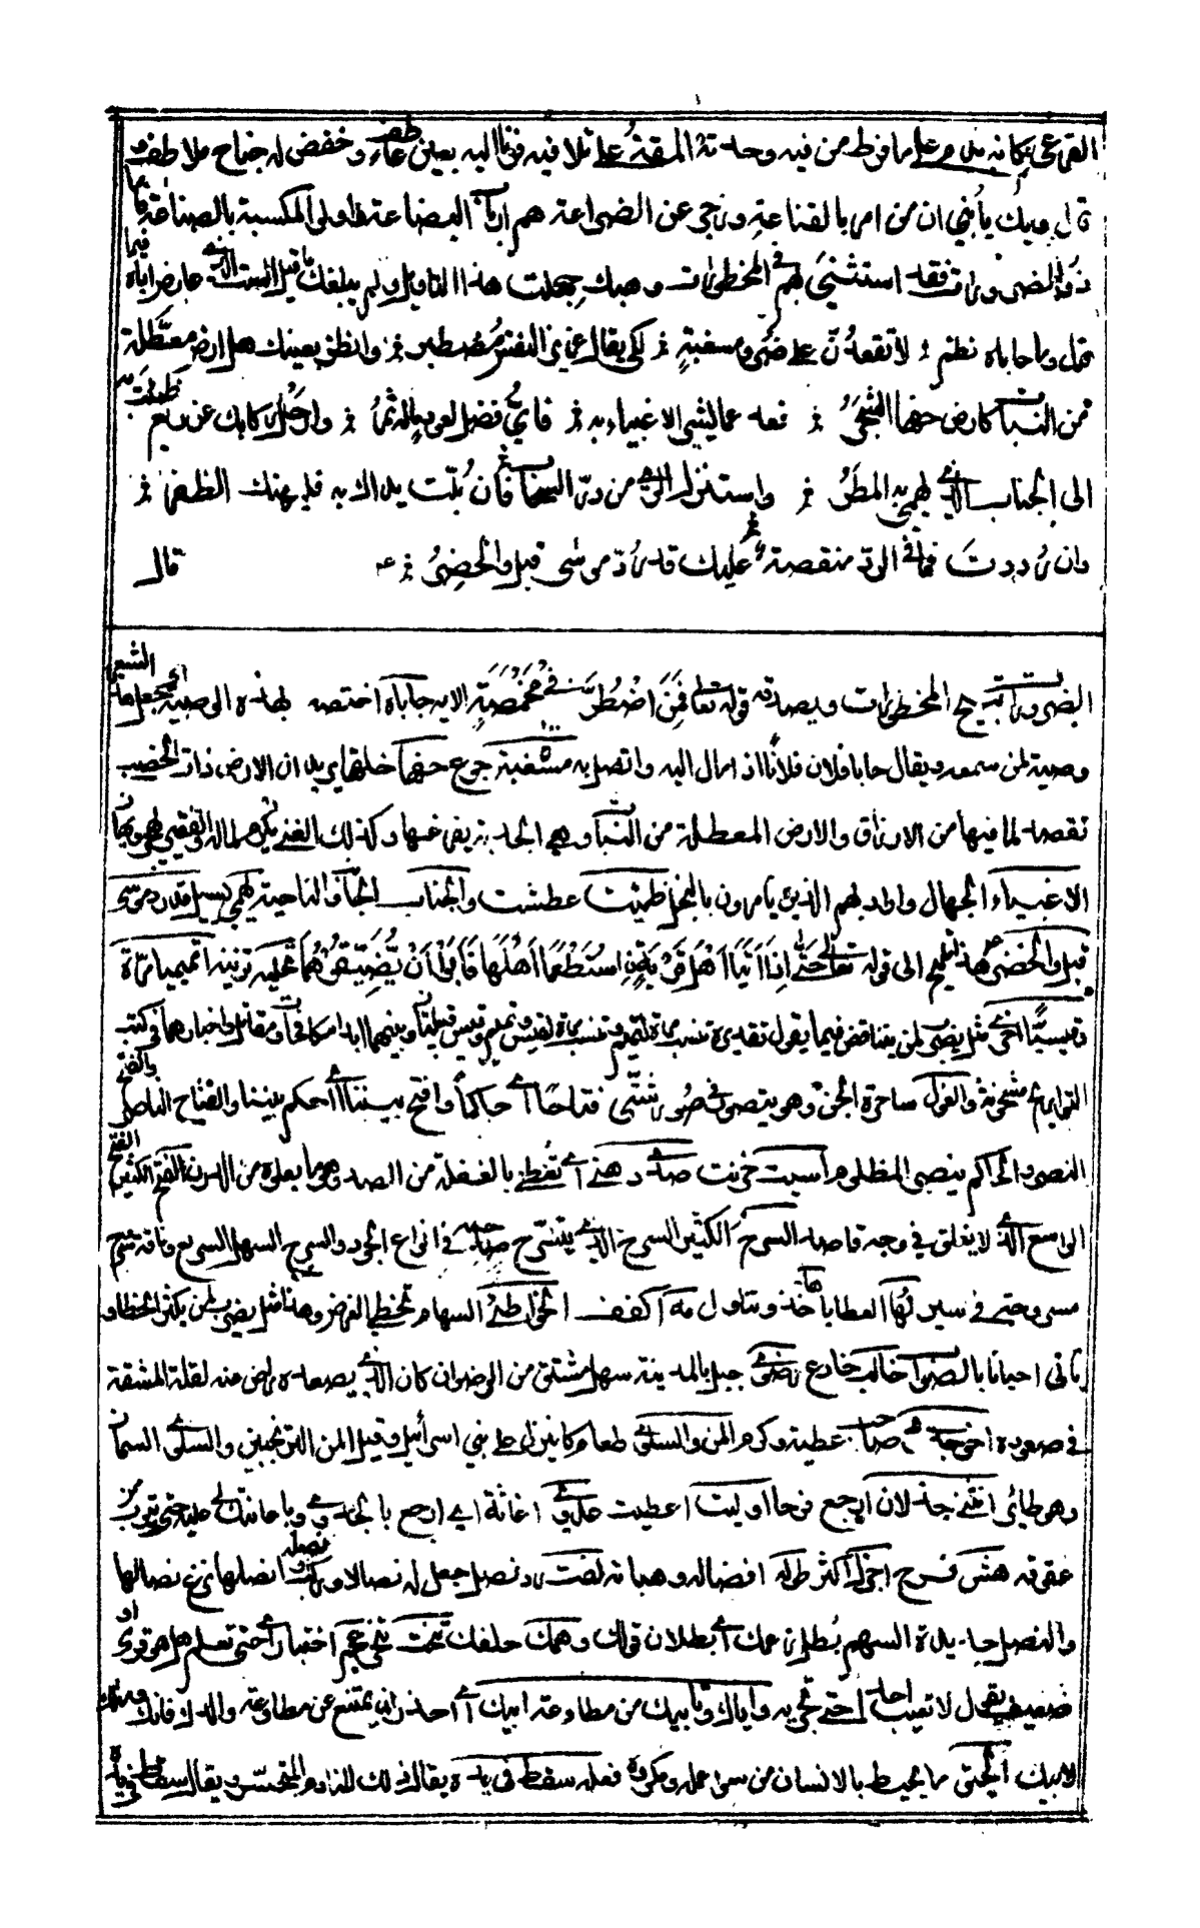 القرعى كانه ندم على ما فرط من فيه وحدته المقة على تلافيه فرنا اليه بعين عاطف وخفض له جناح ملاطف و
قال ويك يا بني ان من امر بالقناعة وزجر عن الضراعة هم ارباب البضاعة واولو المكسبة بالصناعة فاما
ذوو الضرورات فقد استثني بهم في المحظورات وهبك جهلت هذا التاويل ولم يبلغك ما قيل الست الذي عارض اباه فيما
قال وما حاباه نظم لا تقعدن على ضر ومسغبة لكي يقال عزيز النفس مصطبر وانظر بعينك هل ارض معطلة
من النبات كارض حفها الشجر فعد عما يشير الاغبياء به فاي فضل لعود ماله ثمر وارحل ركابك عن ربع ظمئت به
الى الجناب الذي يهمي به المطر واستنزل الري من در السحاب فان بلت يداك به فليهنك الظفر
وان رددت فما في الرد منقصة عليك قد رد موسى قبل والخضر قال
الضرورات تبيح المحظورات ويصدقه قوله تعالى فمن اضطر في مخمصة الاية حاباه اختصه بهذه الوصية اي يجعلها
وصية لمن سمعه ويقال حابا فلان فلانا اذ امال اليه واتصل به مسغبة جوع حفها خلتها يريد ان الارض ذات الخصب
تقصد لما فيها من الارزاق والارض المعطلة من النبات وهي الجدبة يفر عنها وكذلك الغني يكرم لماله والفقير يجهل
الاغبياء الجهال واراد بهم الذين يامرون بالبخل ظمئت عطشت والجناب الجانب والناحية يهمي يسيل قد رد موسى
قبل والخضر هذا تلميح الى قوله تعالى حتى اذا اتيا اهل قرية استطعما اهلها فابوا ان يضيفوهما تحليه تزينه اتميميا مرة
وقيسيا اخرى مثل يضرب لمن يتناقض فيما يقول تقديره تنسب مرة لتميم وتنسب مرة لقيس وتميم وقيس قبيلتان وبينهما ابدا مكافات ومقاتل واخبارهما في كتب
التواريخ مشحونة والغول ساحرة الجن وهو يتصور في صور شتى فتاحا اي حاكما وافتح بيننا اي احكم بيننا والفتاح الناصر والفتح
النصر والحاكم ينصر المظلوم اسيت حزنت صدي ذهني اي تغطى بالغفلة من الصدء وهو ما يعلوه من الدرن الفتح الكثير الفتح
الواسع الذي لا يغلق في وجه قاصد السرح الكثير السرح الذي يتسرح صاحبه في انواع الجود والسرح السهل السريع وناقة سرح
منسرحة في سيرها العطايا خذ وتناول مه اكفف الخواطئ السهام تخطي الغرض وهذا مثل يضرب لمن يكثر الخطا و
ياتي احيانا بالصواب خالب خادع رضوى جبل بالمدينة سهل مشتق من الرضوان كان الذي يصعده رضي عنه لقلة المشقة
في صعوده جدوى عطية وكرم المن والسلوى طعام كان ينزل على بني اسرائيل وقيل المن الترنجبين والسلوى السمان
وهو طائر انثني خذلان ارجع فرحا اوليت اعطيت عدوى اغاثة اي ارجع بالجدوى وباعانتك لي عليه حتى يتوب من
عقوقه هش فرح اجزل اكثر طوله افضاله وهباته لفت رد نصل جعل له نصالا وركب نصله انصلها نزع نصالها
والنصل حديدة السهم بطلان زعمك اي بطلان قولك وهمك حلفك نحت تعجم اختبار اي حتى تعلم هل هو قوي او
ضعيف يقول لا تعيب احدا حتى تجربه واياك وتابيك من مطاوعة ابيك اي احذر ان يمتنع عن مطاوعة والدك فانك
لابيك الحتى ما يحيط بالانسان من سوء عمله ومكروه فعله سقط في يده يقال ذلك للنادم المتحسر ويقال سقط في يده